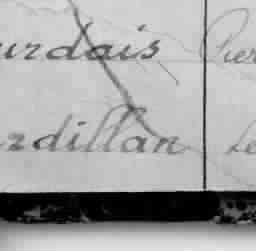 urdais Pier
rdillan Le